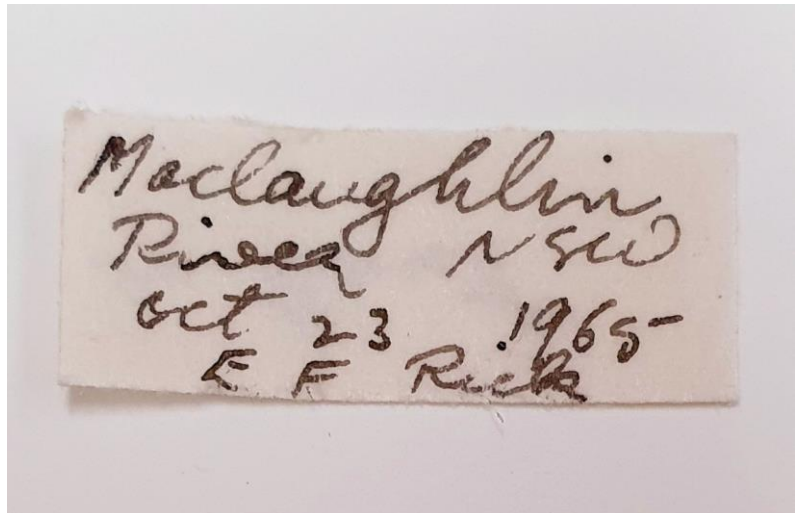 Maclaughlin
River NSW
Oct 23 1965
E F Riek